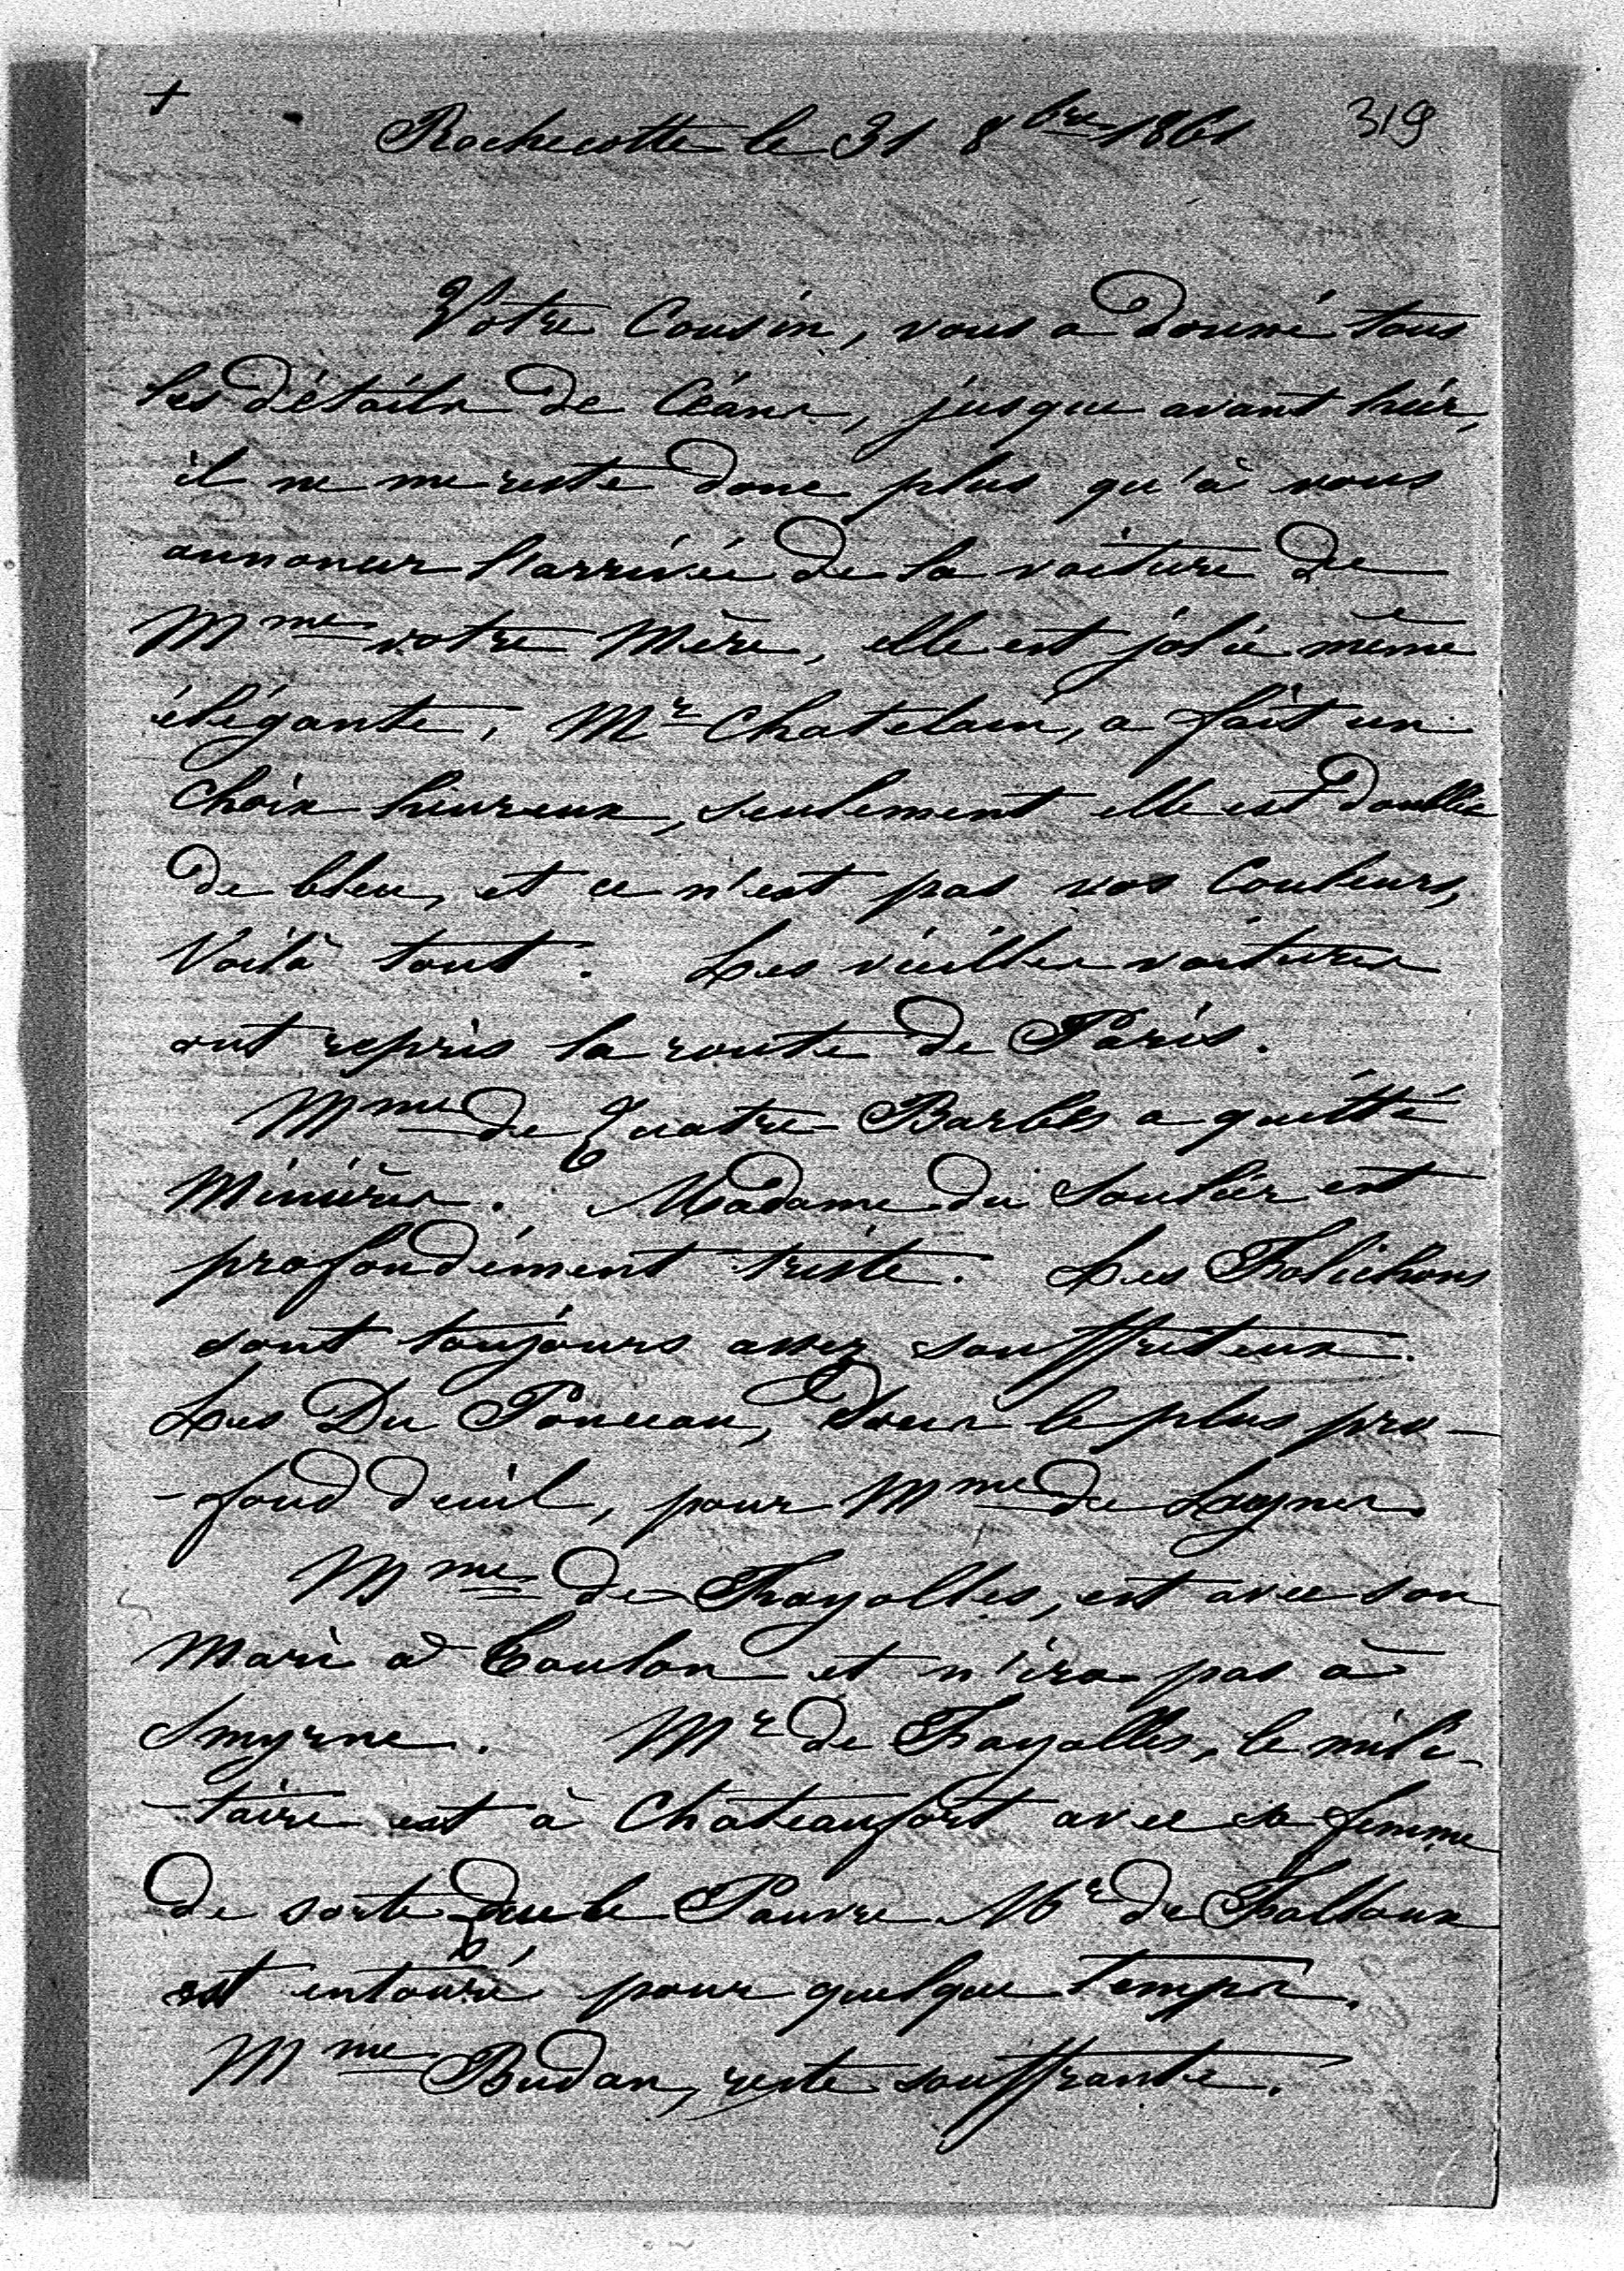 +
Rochecotte le 31 8bre 1861 319
Votre Cousin, vous a donné tous
les détails de Céans, jusque avant hier,
il ne me reste donc plus qu'à vous
annoncer l'arrivée de la voiture de
Mme votre Mère, elle est jolie même
élégante, Mr Chatelain, a fait un
choix heureux, seulement elle est doublée
de bleu, et ce n'est pas vos Couleurs,
Voilà tout. Les vieilles voitures
ont repris la route de Paris.
Mme de Quatre-Barbes a quitté
Minières. Madame du Soulier est
profondément triste. Les Folichons
sont toujours assez souffreteux.
Les Du Ponceau, dans le plus pro-
-fond deuil, pour Mme de
Mme de Fayolles, est avec son
Mari à Toulon et n'ira pas à
Smyrne. Mr de Fayolles, le mili-
-taire est à Châteaufort avec sa femme
de sorte que le Pauvre Mr de Falloux
est entouré pour quelque temps.
Mme Budan, reste souffrante.